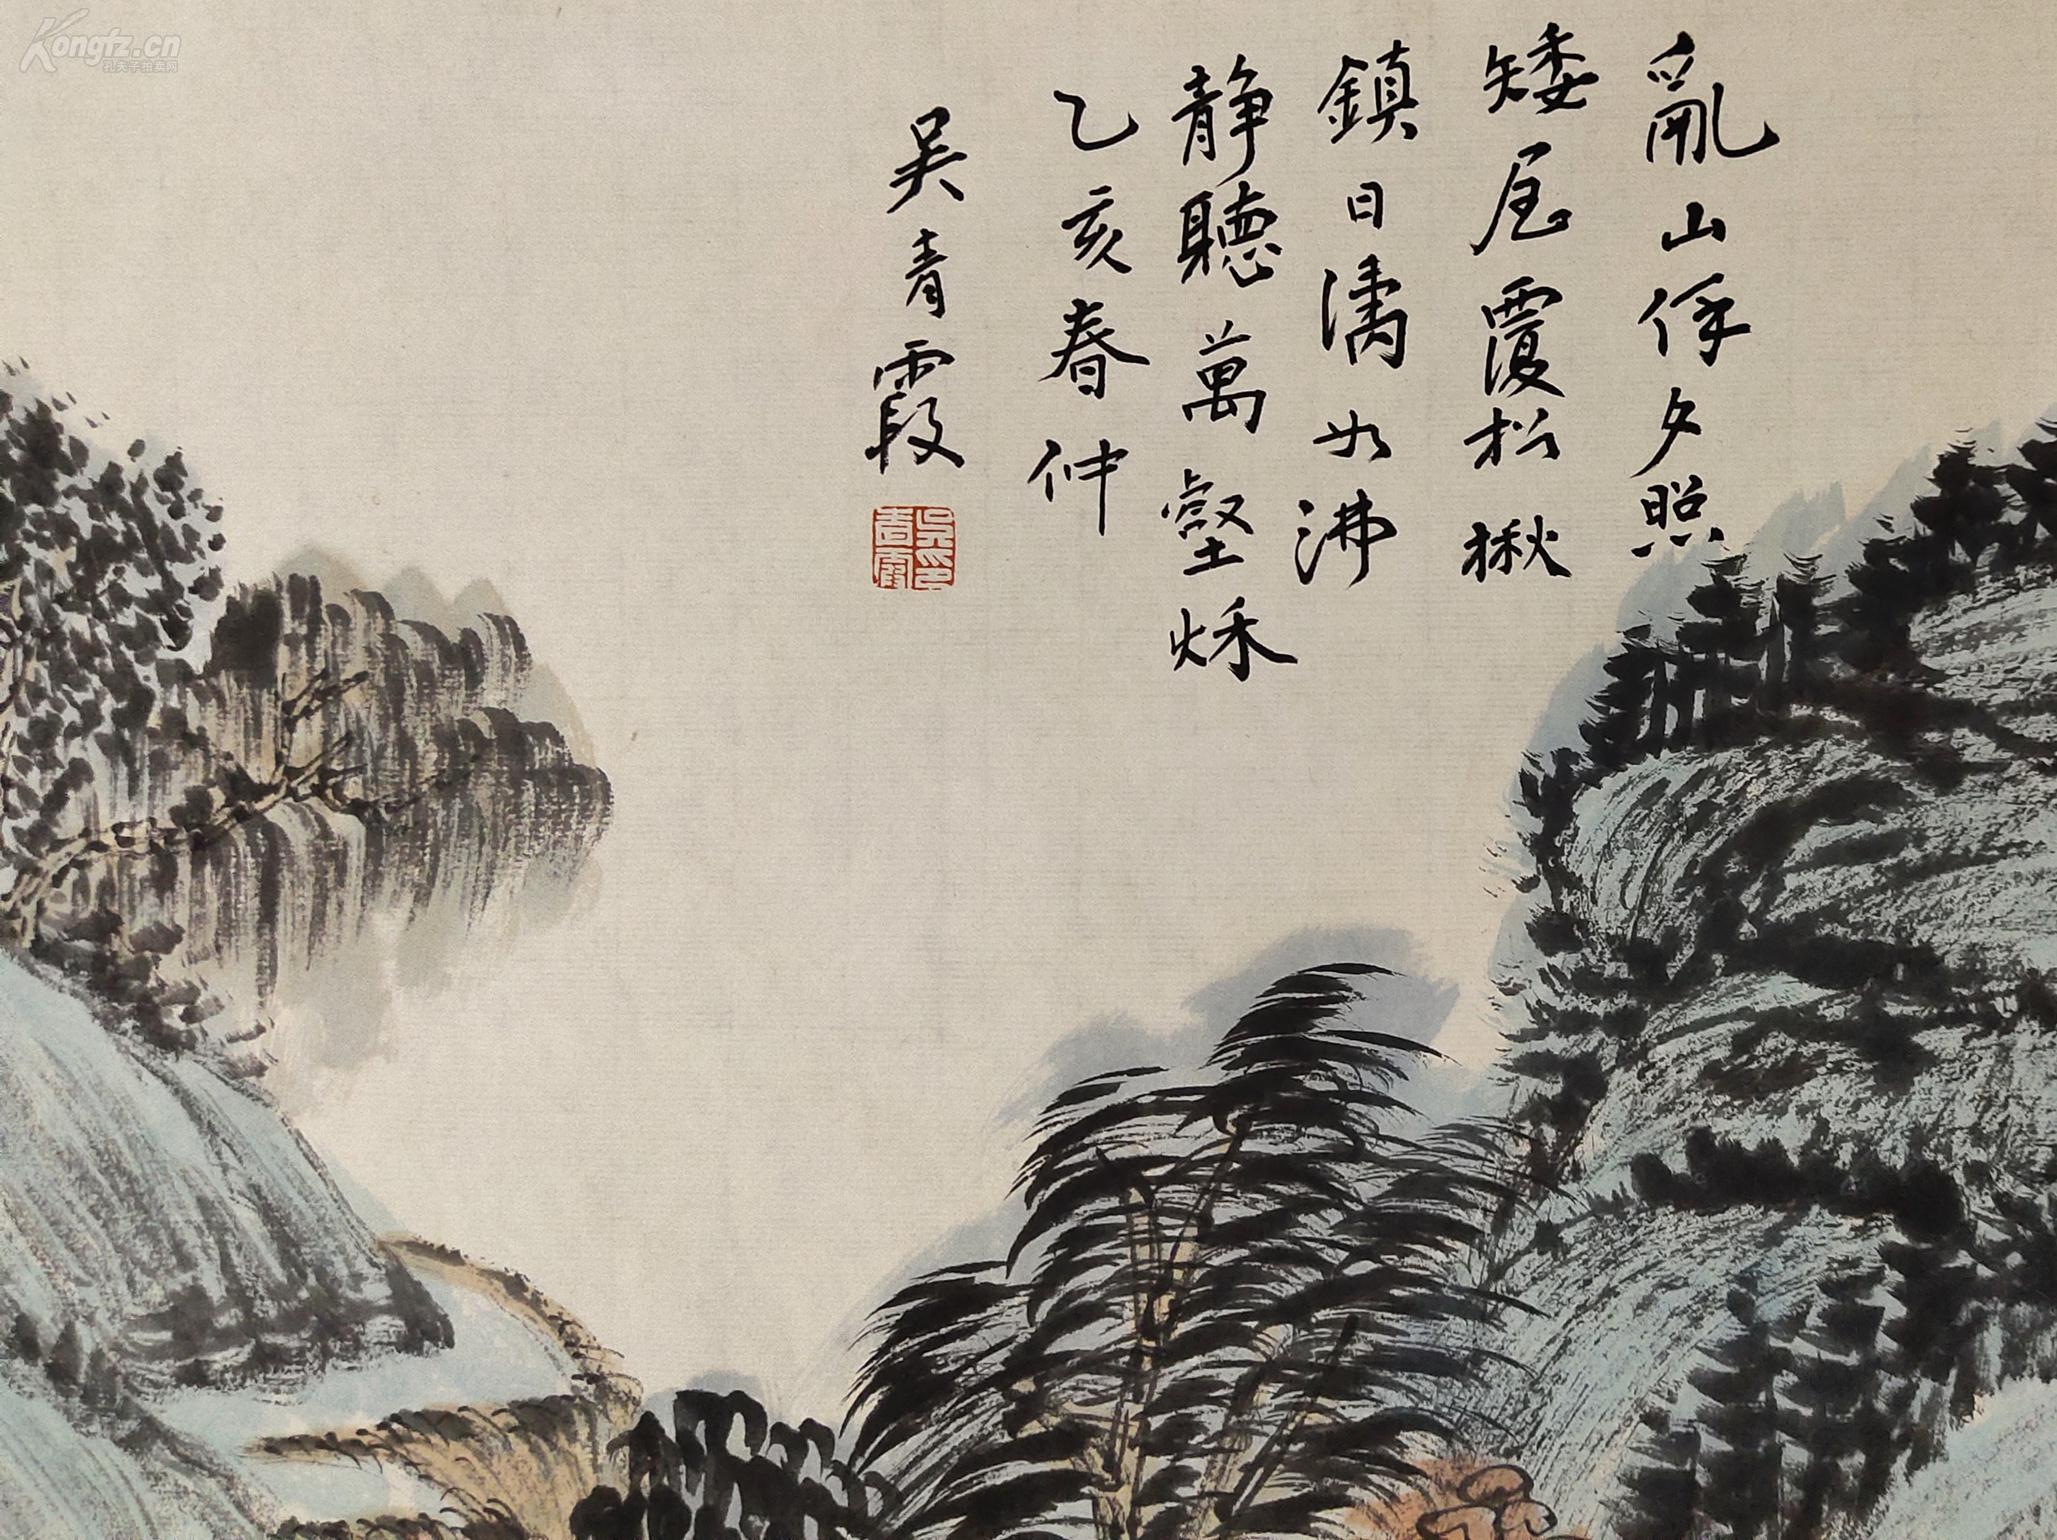 亂山俘夕照
矮屋覆松楸
鎮日濤如沸
静聽萬壑秌
乙亥春仲
吳青霞
吳青霞印
Kongfz.cn
孔夫子拍卖网